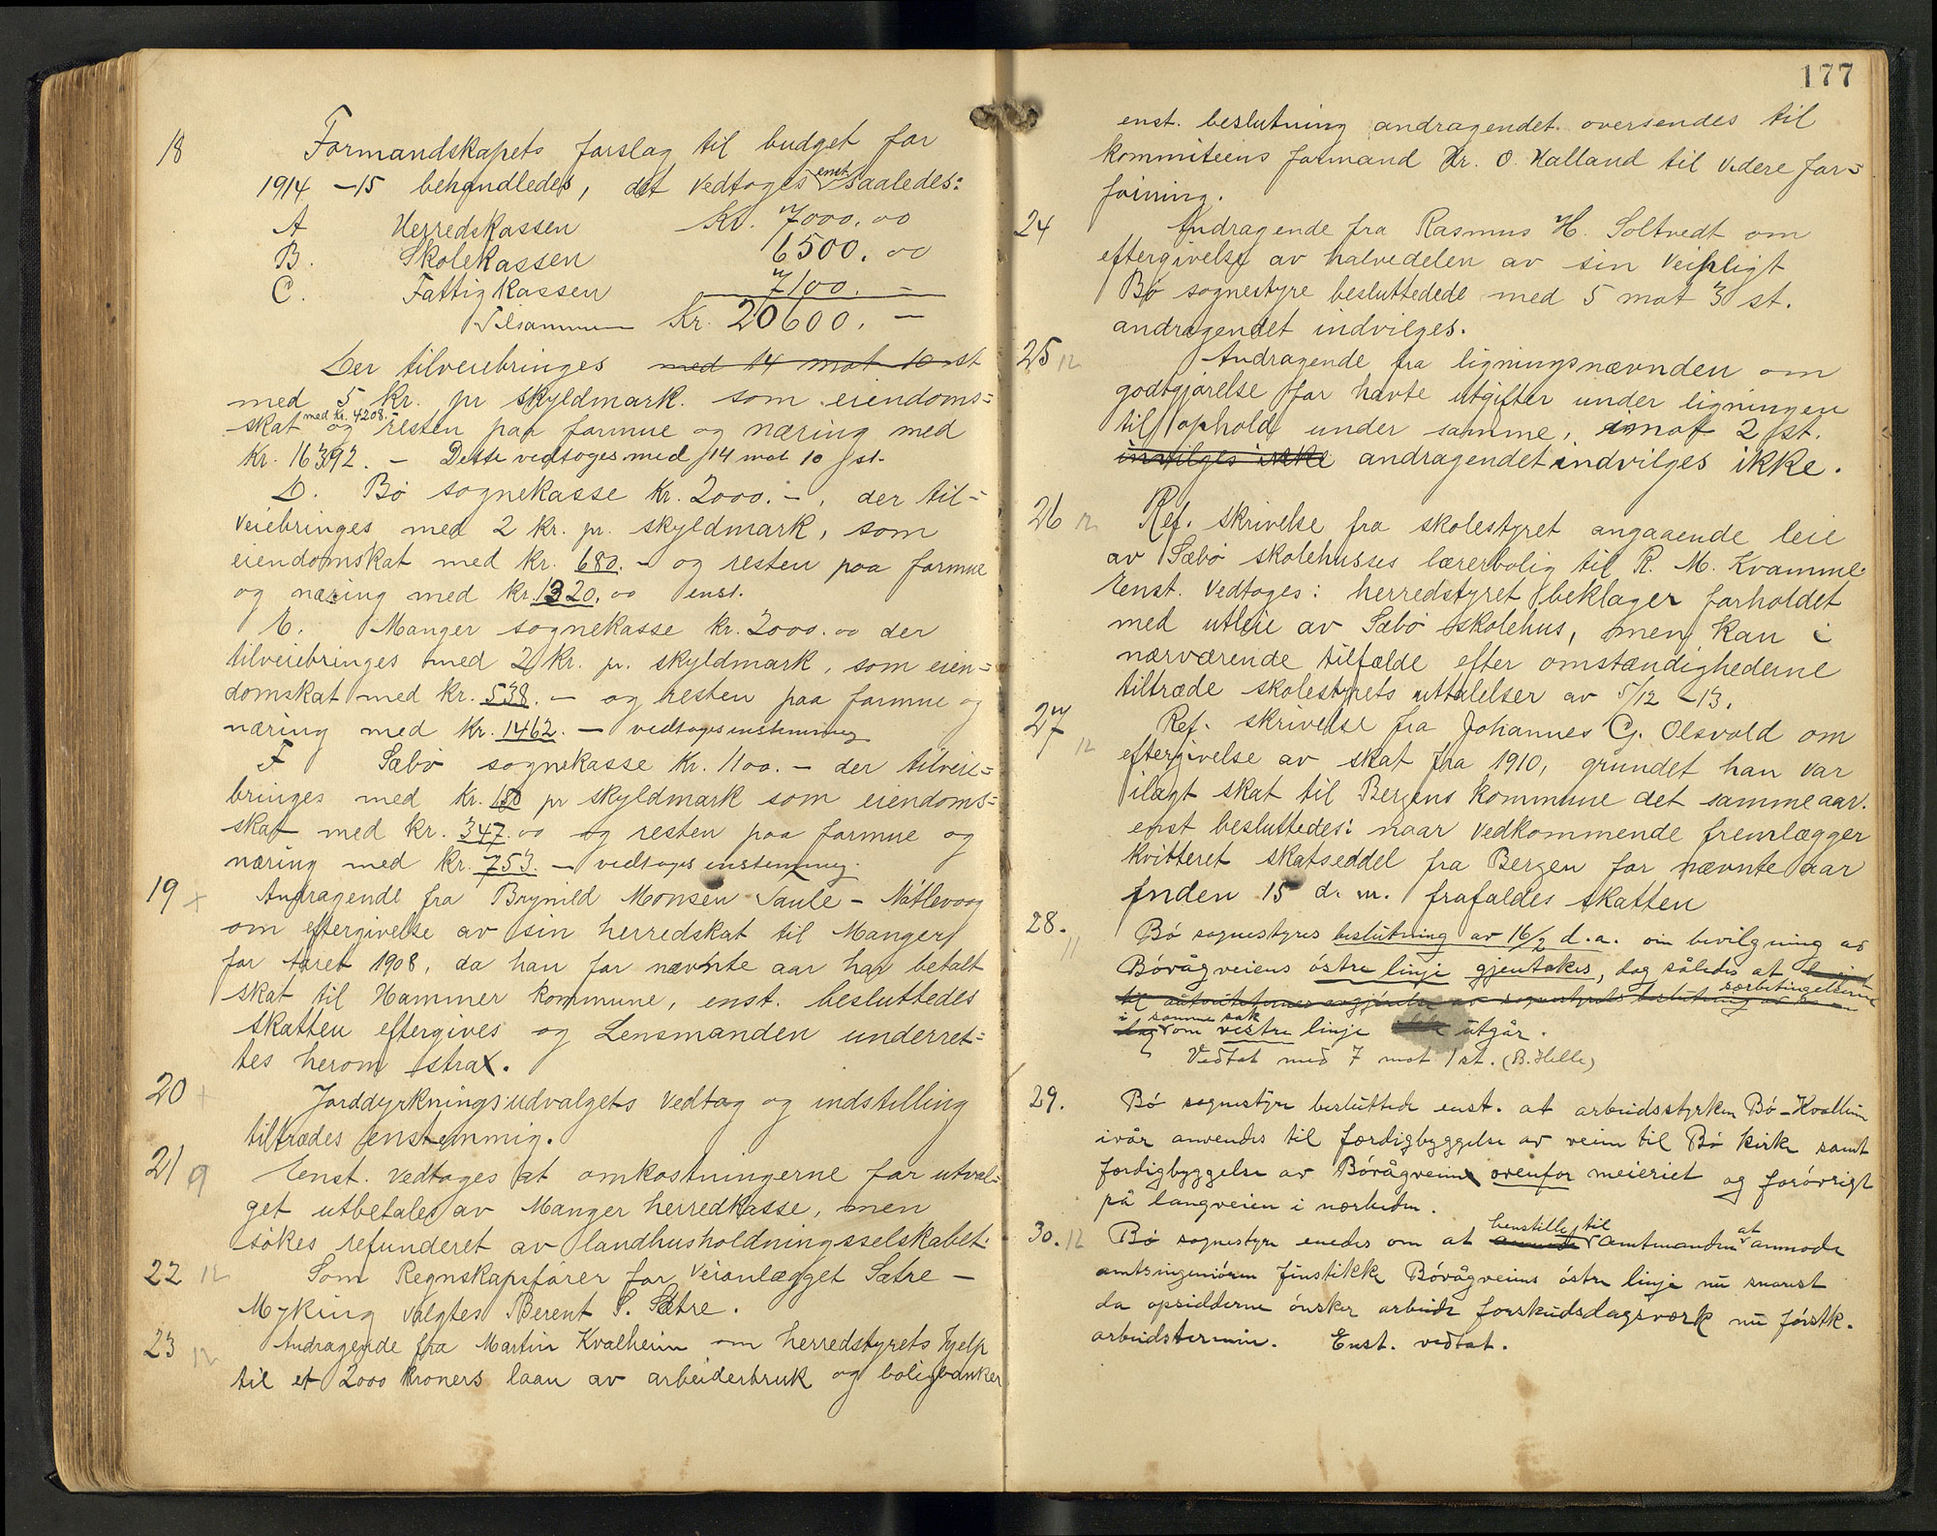 18 Formandskapets forslag til budget for
1914 –15 behandledes, det vedtoges enst. saaledes:
A Herredskassen Kr. 7000.00
B. Skolekassen 6500.00
C. Fattigkassen 7100. –
Tilsammen Kr. 20600. –
Der tilveiebringes med 14 mot 10 st
med 5 kr. pr skyldmark som eiendoms=
skat med kr. 4208. – og resten paa formue og næring med
kr. 16392. – Dette vedtoges med 14 mot 10 st.
D. Bø sognekasse kr. 2000. –, der til=
veiebringes med 2 kr. pr. skyldmark, som
eiendomskat med kr. 680. – og resten paa formue
og næring med kr. 1320.00 enst.
E. Manger sognekasse kr. 2000.00 der
tilveiebringes med 2 kr. pr. skyldmark, som eien=
domskat med kr. 538. – og resten paa formue og
næring med kr. 1462. – vedtoges enstemmig
F Sæbø sognekasse kr. 1100. – der tilveie=
bringes med kr. 150 pr skyldmark som eiendoms=
skat med kr. 347.00 og resten paa formue og
næring med kr. 753. – vedtoges enstemmig.
19 + Andragende fra Brynild Monsen Taule – Nátlevaag
om eftergivelse av sin herredskat til Manger
for Aaret 1908, da han for nævnte aar har betalt
skat til Hammer kommune, enst. besluttedes
skatten eftergives og Lensmanden underret=
tes herom strax.
20 + Jorddyrkningsudvalgets vedtag og indstilling
tiltrædes enstemmig.
21 9 Enst. vedtoges at omkostningerne for utval=
get utbetales av Manger herredkasse, men
søkes refunderet av landhusholdningsselskabet.
22 12 Som Regnskapsfører for veianlægget Sætre –
Myking valgtes Berent S. Sætre.
23 12 Andragende fra Martin Kvalheim om herredstyrets hjelp
til et 2000 kroners laan av arbeiderbruk og boligbanken
177
enst. beslutning andragendet oversendes til
kommiteens formand Hr. O. Halland til videre for=
føining.
24 Andragende fra Rasmus H. Soltvedt om
eftergivelse av halvedelen av sin veipligt
Bø sognestyre besluttedede med 5 mot 3 st.
andragendet indvilges.
25 12 Andragende fra ligningsnævnden om
godtgjørelse for havte utgifter under ligningen
til ophold under samme, imot 2 st.
invilges ikke andragendet indvilges ikke.
26 12 Ref. skrivelse fra skolestyret angaaende leie
av Sæbø skolehusses lærerbolig til R. M. Kvamme.
Enst. vedtoges: herredstyret beklager forholdet
med utleie av Sæbø skolehus, men kan i
nærværende tilfælde efter omstændighederne
tiltræde skolestyrets uttalelser av 5/12 –13.
27 12 Ref. skrivelse fra Johannes G. Olsvold om
eftergivelse av skat fra 1910, grundet han var
ilagt skat til Bergens kommune det samme aar.
enst besluttedes: naar vedkommende fremlægger
kvitteret skatseddel fra Bergen for nævnte aar
inden 15 d. m. frafaldes skatten
28. 11 Bø sognestyres beslutning av 16/2 d.a. om bevilgning av
Bóvågveiens östre linje gjentakes, dog således at
særbetingelserne
i samme sak om vestre linje utgår.
Vedtat med 7 mot 1 st. (B. Helle)
29. Bó sognestyre besluttede enst. at arbeidsstyrken Bó – Kvalheim
ivår anvendes til færdigbyggelse av veien til Bó kirke samt
færdigbyggelse av Bóvågveien ovenfor meieriet og forövrigt
på langveien i nærheden.
30. 12 Bó sognestyre enedes om at henstille til amtmanden at anmode
amtsingeniören finstikke Bóvågveiens östre linje nu snarest
da opsidderne ónsker arbeide forskudsdagsværk nu fórstk.
arbeidstermin. Enst. vedtat.